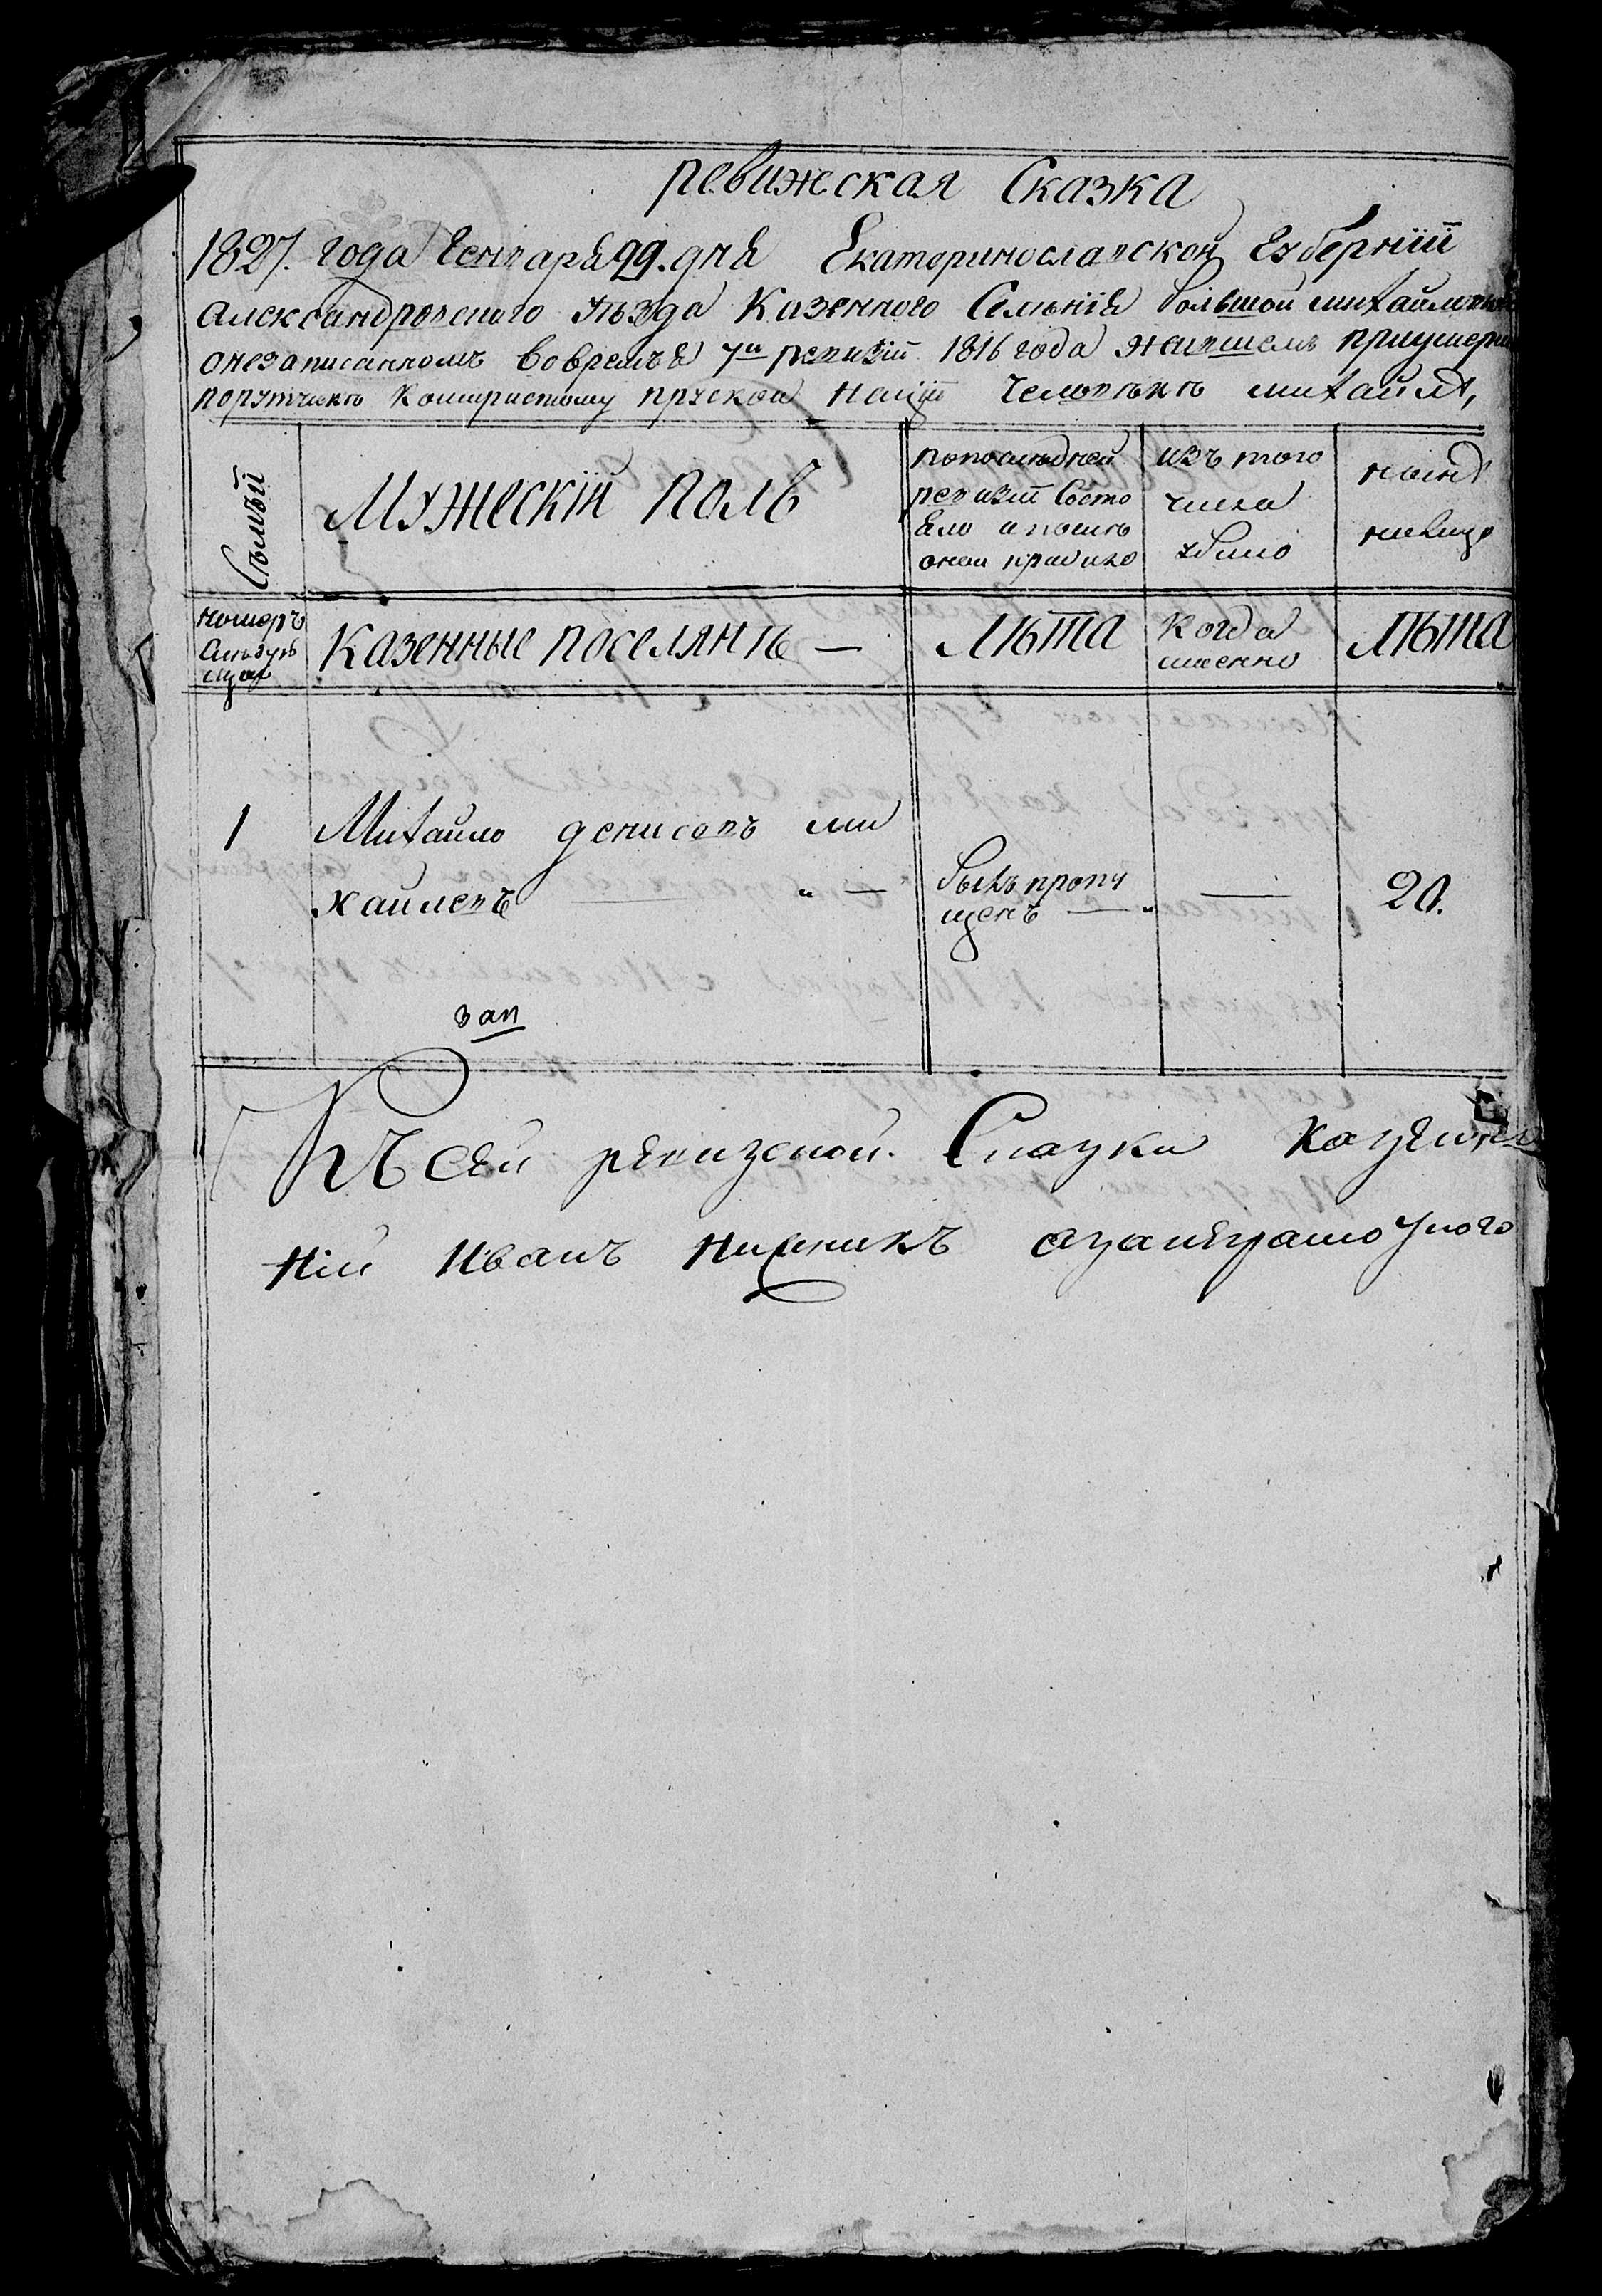 ревижеская Сказка
1827. года Генваря 29. дня Екатеринославской Губернiи
Александровского уѣзда Казенного Селѣнiя большой михайловки
онезаписанномъ вовремѣя 7й ревизiи 1816 года жившемъ приумерш
порутчикѣ прускои нацiи Человѣкѣ михайлѣ,
Сѣмѣй
Мужескiй полъ
попослѣдней
ревизiи Состо
яло а послѣ
онеи прибыло
изъ того
числа
убыло
нынѣ
налицо
номеръ
Казенные поселянѣ —
Лѣта
Когда
именно
Лѣта
1
Михайло денисовъ ми
хаилевъ — " —
былъ пропу
щенъ — "
—
20.
зап
Къ сей ревизской Сказки казен
нiй Иванъ